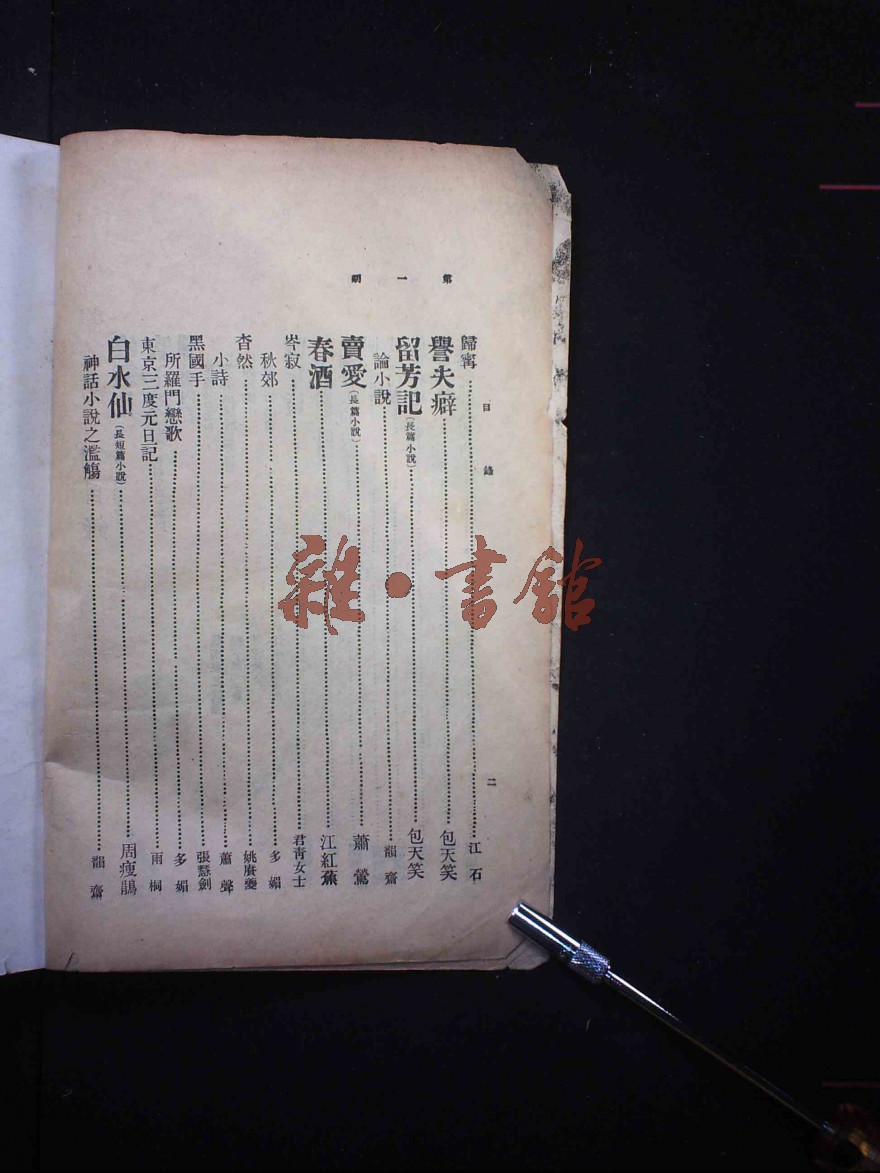 第一期
目錄
二
歸寗 江石
譽夫癖 包天笑
留芳記(長篇小說) 包天笑
論小說 韻齋
賣愛(長篇小說) 蕭鶯
春酒 江紅蕉
岑寂 君靑女士
秋郊 多媚
杳然 姚賡夔
小詩 蕭聲
黑國手 張慧劍
所羅門戀歌 多媚
東京三度元日記 雨桐
白水仙(長短篇小說) 周瘦鵑
神話小說之濫觴 韻齋
雜·書館